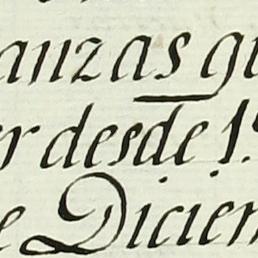 anzas qu
er desde 1º
e Diciem